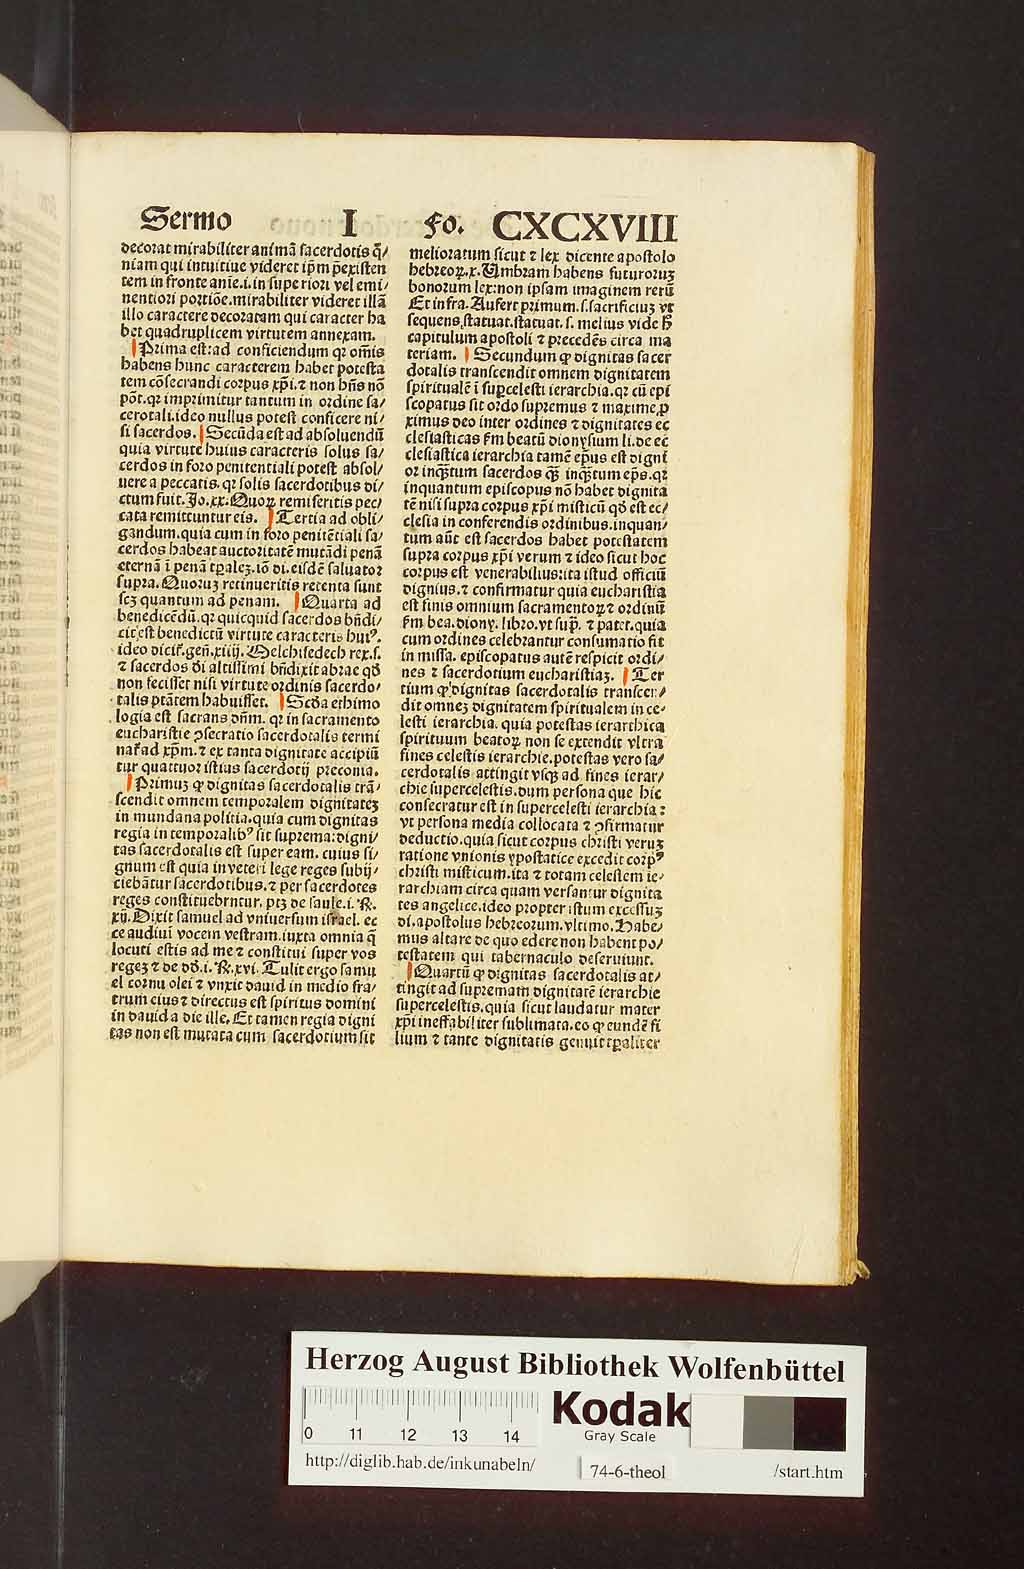 Sermo I Fo. CXCXVIII
decorat mirabiliter animã sacerdotis q̃/
niam qui intuitiue videret ip̃m p̃existen
tem in fronte anie.i.in superiori vel emi/
nentiori portiõe.mirabiliter videret illã
illo caractere decoratam qui caracter ha
bet quadruplicem virtutem annexam.
Prima est:ad conficiendum qꝛ om̃is
habens hunc caracterem habet potesta
tem cõsecrandi corpus xp̃i.⁊ non hñs nõ
põt.qꝛ imprimitur tantum in ordine sa/
cerotali.ideo nullus potest conficere ni/
si sacerdos. Secũda est ad absoluendũ
quia virtute huius caracteris solus sa/
cerdos in foro penitentiali potest absol/
uere a peccatis.qꝛ solis sacerdotibus di/
ctum fuit.Jo.xx.Quoꝝ remiseritis pec/
cata remittuntur eis. Tertia ad obli/
gandum.quia cum in foro penitẽtiali sa/
cerdos habeat auctoritatẽ mutãdi penã
eternã ĩ penã tꝑaleꝫ.iõ di.eisdẽ saluator
supra.Quoruꝫ retinueritis retenta sunt
scꝫ quantum ad penam. Quarta ad
benedicẽdũ.qꝛ quicquid sacerdos bñdi/
cit est benedictũ virtute caracteris huiꝰ.
ideo dicit᷑.geñ.xiiij. Melchisedech rex.s.
⁊ sacerdos di altissimi bñdixit abrae qđ
non fecisset nisi virtute ordinis sacerdo/
talis ptãtem habuisset. Scđa ethimo
logia est sacrans dñm. qꝛ in sacramento
eucharistie ↄsecratio sacerdotalis termi
nat᷑ ad xp̃m.⁊ ex tanta dignitate accipiũ
tur quattuor istius sacerdotij preconia.
Primuꝫ ꝙ dignitas sacerdotalis trã/
scendit omnem temporalem dignitateꝫ
in mundana politia.quia cum dignitas
regia in temporalibꝰ sit suprema:digni/
tas sacerdotalis est super eam. cuius si/
gnum est quia in veteri lege reges subij/
ciebãtur sacerdotibus.⁊ per sacerdotes
reges constituebrntur. ptꝫ de saule.i. R.
xij. Dixit samuel ad vniuersum israel. ec
ce audiui vocem vestram.iuxta omnia q̃
locuti estis ad me ⁊ constitui super vos
regeꝫ ⁊ de dđ.i. R.xvi. Tulit ergo samu
el cornu olei ⁊ vnxit dauid in medio fra/
trum eius ⁊ directus est spiritus domini
in dauid a die ille. Et tamen regia digni
tas non est mutata cum sacerdotium sit
melioratum sicut ⁊ lex dicente apostolo
hebreoꝝ.x. Umbram habens futuroruꝫ
bonorum lex:non ipsam imaginem rerũ
Et infra. Aufert primum.s.sacrificiuꝫ vt
sequens statuat.statuat.s. melius vide ħ
capitulum apostoli ⁊ precedẽs circa ma
teriam. Secundum ꝙ dignitas sacer
dotalis transcendit omnem dignitatem
spiritualẽ ĩ suꝑcelesti ierarchia.qꝛ cũ epi
scopatus sit ordo supremus ⁊ maxime ꝓ
ximus deo inter ordines ⁊ dignitates ec
clesiasticas ẜm beatũ dionysium li.de ec
clesiastica ierarchia tamẽ ep̃us est digni
or inq̃tum sacerdos q̃ꝫ inq̃tum ep̃s.qꝛ
inquantum episcopus nõ habet dignita
tẽ nisi supra corpus xp̃i misticũ qđ est ec/
clesia in conferendis ordinibus.inquan/
tum aũt est sacerdos habet potestatem
supra corpus xp̃i verum ⁊ ideo sicut hoc
corpus est venerabilius:ita istud officiũ
dignius.⁊ confirmatur quia eucharistia
est finis omnium sacramentoꝝ ⁊ ordinũ
ẜm bea.diony. libro.vt supͣ. ⁊ patet.quia
cum ordines celebrantur consumatio fit
in missa. episcopatus autẽ respicit ordi/
nes ⁊ sacerdotium eucharistiaꝫ. Ter
tium ꝙ dignitas sacerdotalis transcen/
dit omneꝫ dignitatem spiritualem in ce/
lesti ierarchia. quia potestas ierarthica
spirituum beatoꝝ non se extendit vltra
fines celestis ierarchie.potestas vero sa/
cerdotalis attingit vsqꝫ ad fines ierar/
chie supercelestis.dum persona que hic
consecratur est in supercelesti ierarchia:
vt persona media collocata ⁊ ↄfirmatur
deductio.quia sicut corpus christi veruꝫ
ratione vnionis ypostatice excedit corpꝰ
christi misticum.ita ⁊ totam celestem ie/
rarchiam circa quam versantur dignita
tes angelice.ideo propter istum excessuꝫ
di.apostolus hebreorum.vltimo. Habe/
mus altare de quo edere non habent po/
testatem qui tabernaculo deseruiunt.
Quartũ ꝙ dignitas sacerdotalis at/
tingit ad supremam dignitatẽ ierarchie
supercelestis.quia sicut laudatur mater
xp̃i ineffabiliter sublimata.eo ꝙ eundẽ fi
lium ⁊ tante dignitatis genuit tꝑaliter
Herzog August Bibliothek Wolfenbüttel
0 11 12 13 14
Kodak
Gray Scale
http://diglib.hab.de/inkunabeln/
74-6-theol
/start.htm